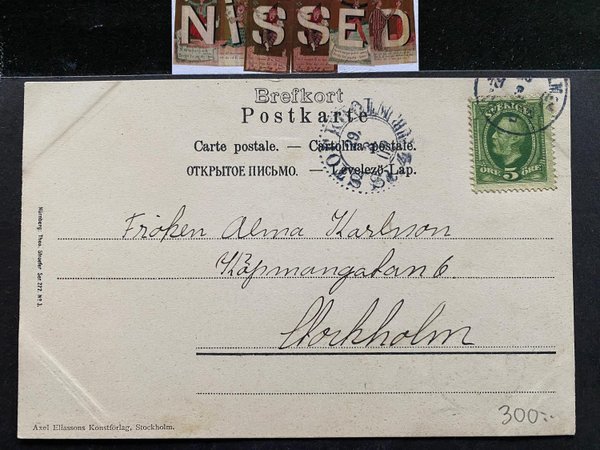 NISSED
Brefkort
Postkarte
Carte postale. — Cartolina postale.
ОТКРЫТОЕ ПИСЬМО. — Levelező-Lap.
STOCKHOLM
SVERIGE
ÖRE 5 ÖRE
Fröken Alma Karlsson
Köpmangatan 6
Stockholm
Nürnberg: Theo. Stroefer Ser 277. Nº 3.
Axel Eliassons Konstförlag, Stockholm.
300:-